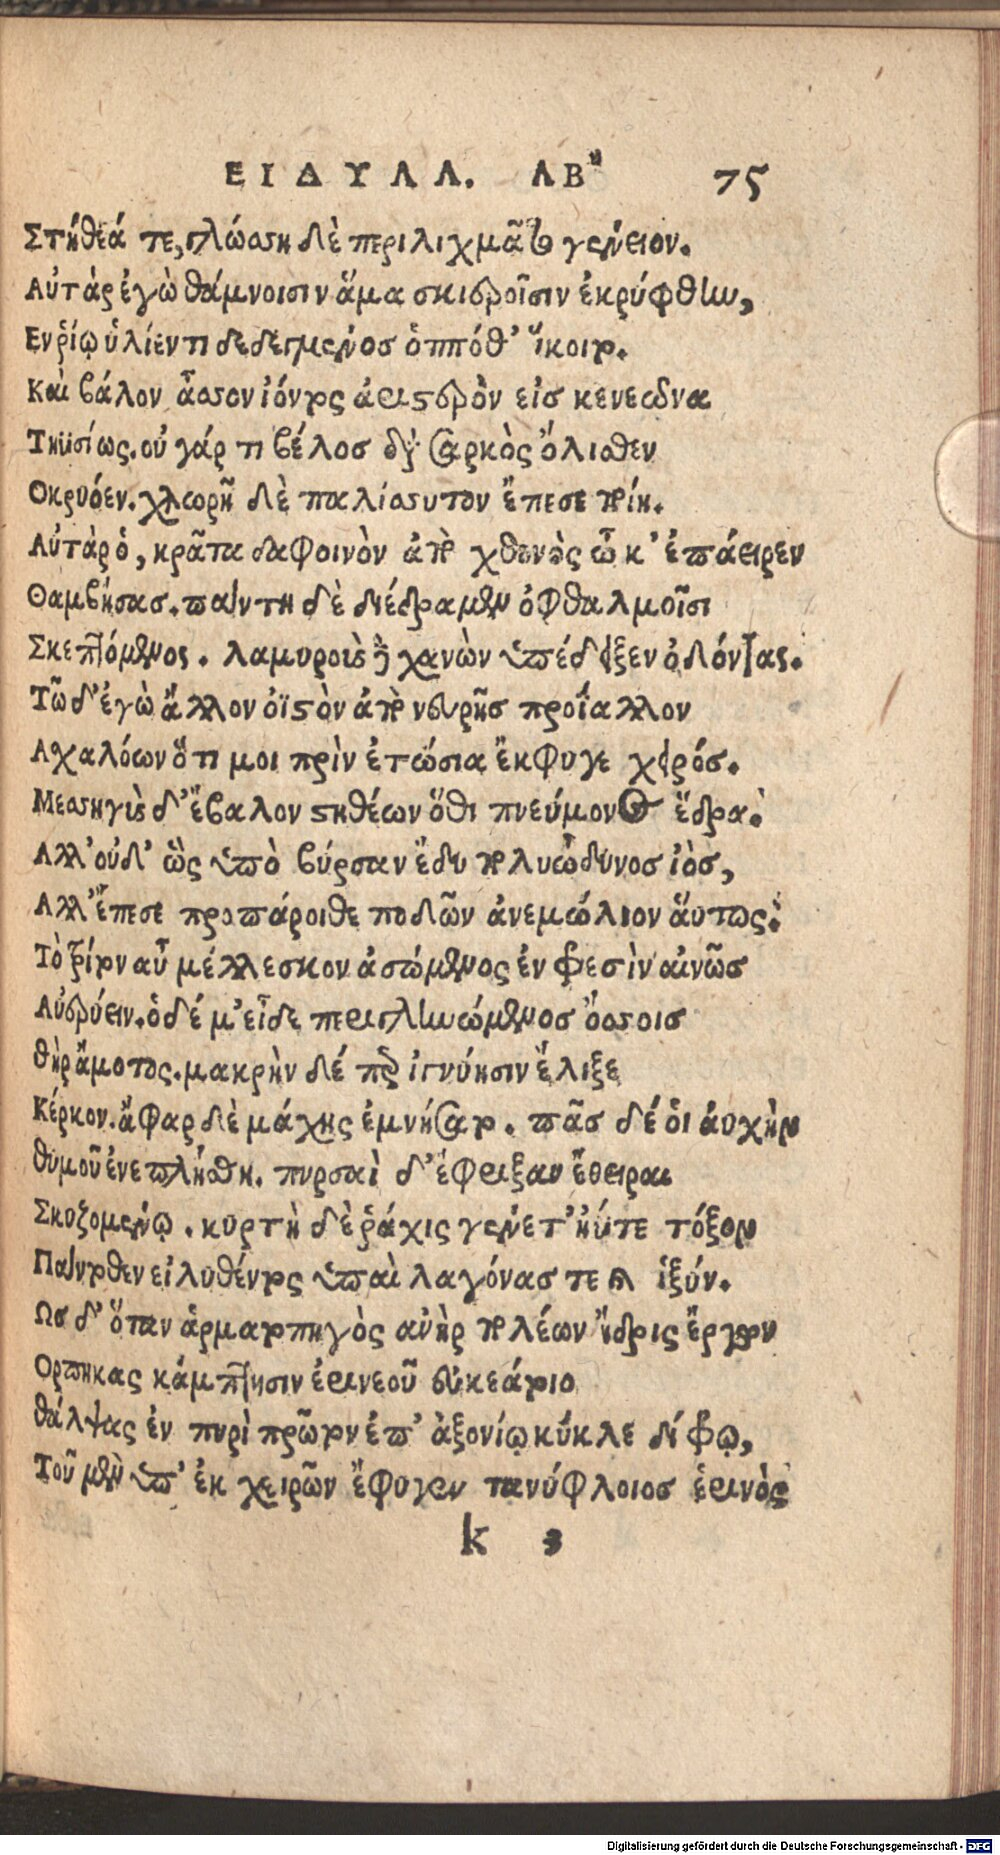 ΕΙΔΥΛΛ. ΛΒ 75
Στήθεά τε, γλώσση δὲ περιλιχμᾶτο γένειον.
Αὐτὰρ ἐγὼ θάμνοισιν ἅμα σκιεροῖσιν ἐκρύφθην,
Εν ῥίῳ ὑλίεντι δεδεγμένος ὁππόθ' ἵκοιτο.
Καὶ βάλον ἆσσον ἰόντος ἀριστερὸν εἰς κενεῶνα
Τηϋσίως. οὐ γάρ τι βέλος διὰ σαρκὸς ὄλισθεν
Οκρυόεν. χλωρῇ δὲ παλίσσυτον ἔπεσε ποίῃ.
Αὐτὰρ ὁ, κρᾶτα δαφοινὸν ἀπὸ χθονὸς ὦκ' ἐπάειρεν
Θαμβήσας. πάντη δὲ διέδραμεν ὀφθαλμοῖσι
Σκεπτόμενος. λαμυροὺς δὲ χανὼν ὑπέδειξεν ὀδόντας.
Τῷ δ' ἐγὼ ἄλλον ὀϊστὸν ἀπὸ νευρῆς προΐαλλον
Ασχαλόων ὅτι μοι πρὶν ἐτώσια ἔκφυγε χειρός.
Μεσσηγὺς δ' ἔβαλον στηθέων ὅθι πνεύμονος ἕδρα.
Αλλ' οὐδ' ὣς ὑπὸ βύρσαν ἔδυ πολυώδυνος ἰὸς,
Αλλ' ἔπεσε προπάροιθε ποδῶν ἀνεμώλιον αὔτως.
Τὸ τρίτον αὖ μέλλεσκον ἀσώμενος ἐν φρεσὶν αἰνῶς
Αὐερύειν. ὁ δέ μ' εἶδε περιγληνώμενος ὄσσοις
Θὴρ ἄμοτος. μακρὴν δέ περ ἰγνύησιν ἕλιξε
Κέρκον. ἄφαρ δὲ μάχης ἐμνήσατο. πᾶς δέ οἱ αὐχὴν
Θυμοῦ ἐνεπλήσθη. πυρσαὶ δ' ἔφριξαν ἔθειραι
Σκυζομένῳ. κυρτὴ δὲ ῥάχις γένετ' ἠΰτε τόξον
Πάντοθεν εἰλυθέντος ὑπαὶ λαγόνας τε καὶ ἰξύν.
Ως δ' ὅταν ἁρματοπηγὸς ἀνὴρ πολέων ἴδρις ἔργων
Ορπηκας κάμπτησιν ἐρινεοῦ εὐκεάτοιο
Θάλψας ἐν πυρὶ πρῶτον ἐπ' ἀξονίῳ κύκλα δίφρῳ,
Τοῦ μὲν ὑπ' ἐκ χειρῶν ἔφυγεν τανύφλοιος ἐρινὸς
k 3
Digitalisierung gefördert durch die Deutsche Forschungsgemeinschaft - DFG